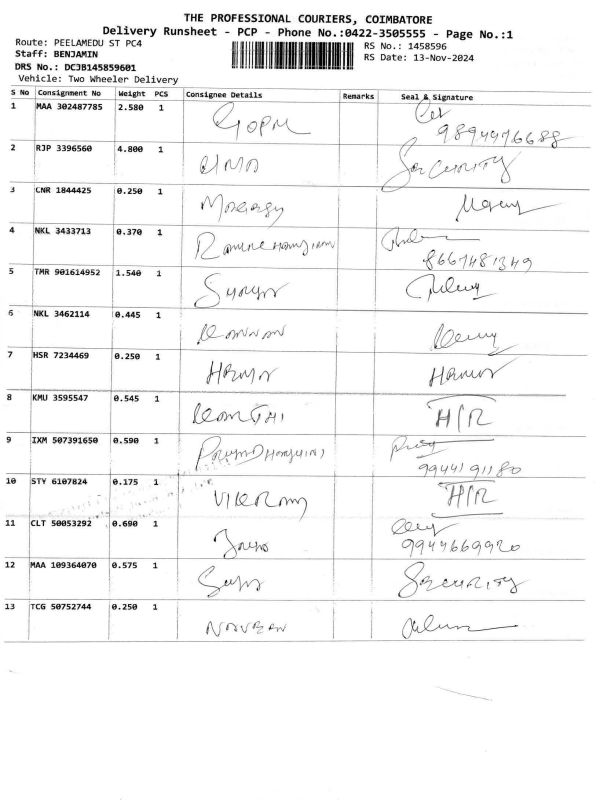 THE PROFESSIONAL COURIERS, COIMBATORE
Delivery Runsheet - PCP - Phone No.:0422-3505555 - Page No.:1
Route: PEELAMEDU ST PC4
Staff: BENJAMIN
DRS No.: DCJB145859601
Vehicle: Two Wheeler Delivery
RS No.: 1458596
RS Date: 13-Nov-2024
S No Consignment No Weight PCS Consignee Details Remarks Seal & Signature
1 MAA 302487785 2.580 1 GOPAL 9894476688
2 RJP 3396560 4.800 1 UMA SECURITY
3 CNR 1844425 0.250 1
4 NKL 3433713 0.370 1 8667481349
5 TMR 901614952 1.540 1 SURYA
6 NKL 3462114 0.445 1 KANNAN
7 HSR 7234469 0.250 1
8 KMU 3595547 0.545 1 H/R
9 IXM 507391650 0.590 1 9944191180
10 STY 6107824 0.175 1 VIKRAM H/R
11 CLT 50053292 0.690 1 9944669920
12 MAA 109364070 0.575 1 SECURITY
13 TCG 50752744 0.250 1 NAVEEN